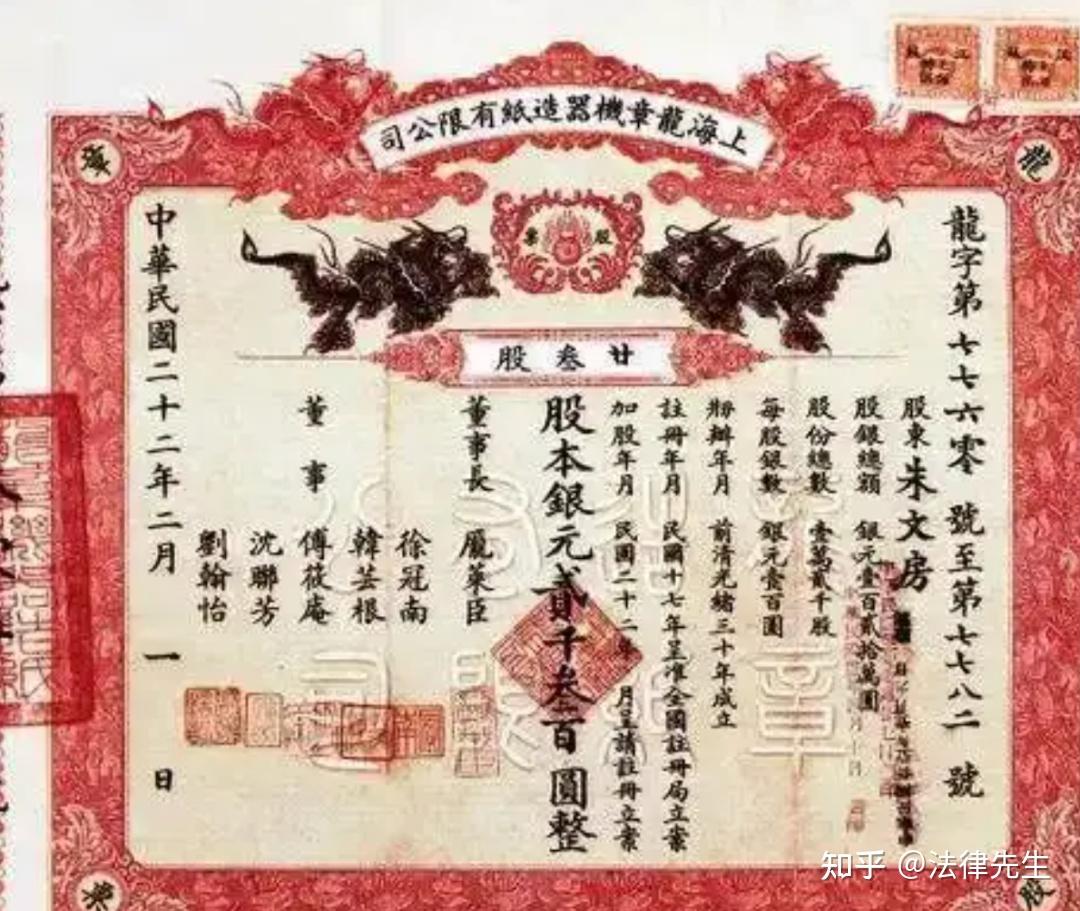 上海龍章機器造紙有限公司
龍
股票
廿叁股
龍字第七七六零號至第七七八二號
股東 朱文房
股銀總額 銀元壹百貳拾萬圓
股份總數 壹萬貳千股
每股銀數 銀元壹百圓
辦年月 前清光緒三十年成立
註冊年月 民國十七年呈准全國註冊局立案
加股年月 民國二十二年 月呈請註冊立案
股本銀元貳千叁百圓整
董事長 厲萊臣
徐冠南
韓芸根
董事 傅筱庵
沈聯芳
劉翰怡
中華民國二十二年二月一日
股
知乎 @法律先生